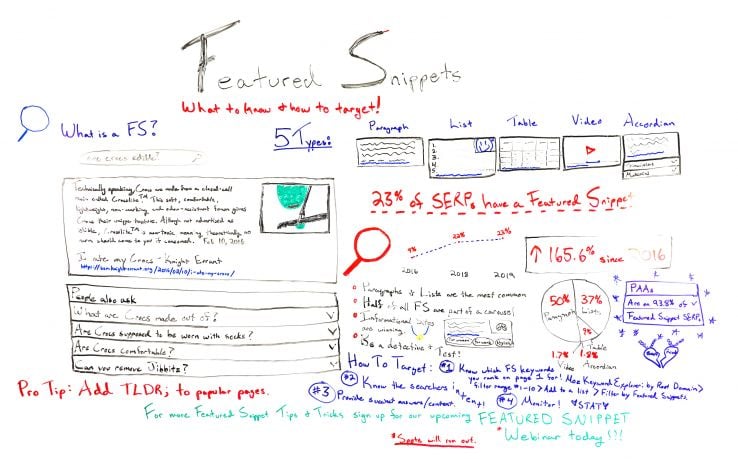 Featured Snippets
What to know & how to target!
What is a FS?
are crocs edible?
Technically speaking Crocs are made from a closed-cell
resin called Croslite™. This soft, comfortable,
lightweight, non-marking and odor-resistant
Crocs their unique
edible, Croslite™ is non-toxic meaning theoretically, no
harm should come to you if consumed. Feb 10, 2016
I ate my Crocs - Knight Errant
People also ask
What are Crocs made out of?
Are Crocs supposed to be worn with socks?
Are Crocs comfortable?
Can you remove Jibbitz?
Pro Tip: Add TLDR; to popular pages.
5 Types:
Paragraph
List
Table
Video
Accordian
1.
2.
3.
4.
5.
23% of SERPs have a Featured Snippet
9%
22%
23%
2016
2018
2019
↑ 165.6% since 2016
Paragraphs & Lists are the most common
Half of all FS are part of a carousel
Informational
are winning
Be a detective & Test!
50%
Paragraph
37%
Lists
9%
Table
1.7%
Video
1.8%
Accordian
PAAs
Are on 93.8% of
Featured Snippet SERPs
How To Target:
#1 Know which FS keywords
you rank on page 1 for! Moz Keyword Explorer: by Root Domain >
filter range #1-10 > Add to a list > Filter by Featured Snippets.
#2 Know the searchers intent
#3 Provide succinct answers/content.
#4 Monitor! STAT
For more Featured Snippet Tips & Tricks sign up for our upcoming FEATURED SNIPPET
Webinar today!!!
*Spots will run out.